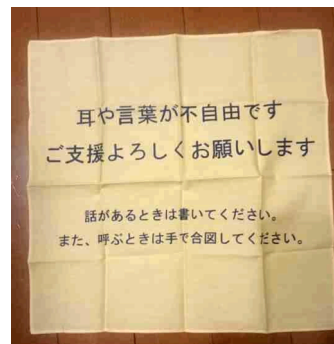 耳や言葉が不自由です
ご支援よろしくお願いします
話があるときは書いてください。
また、呼ぶときは手で合図してください。